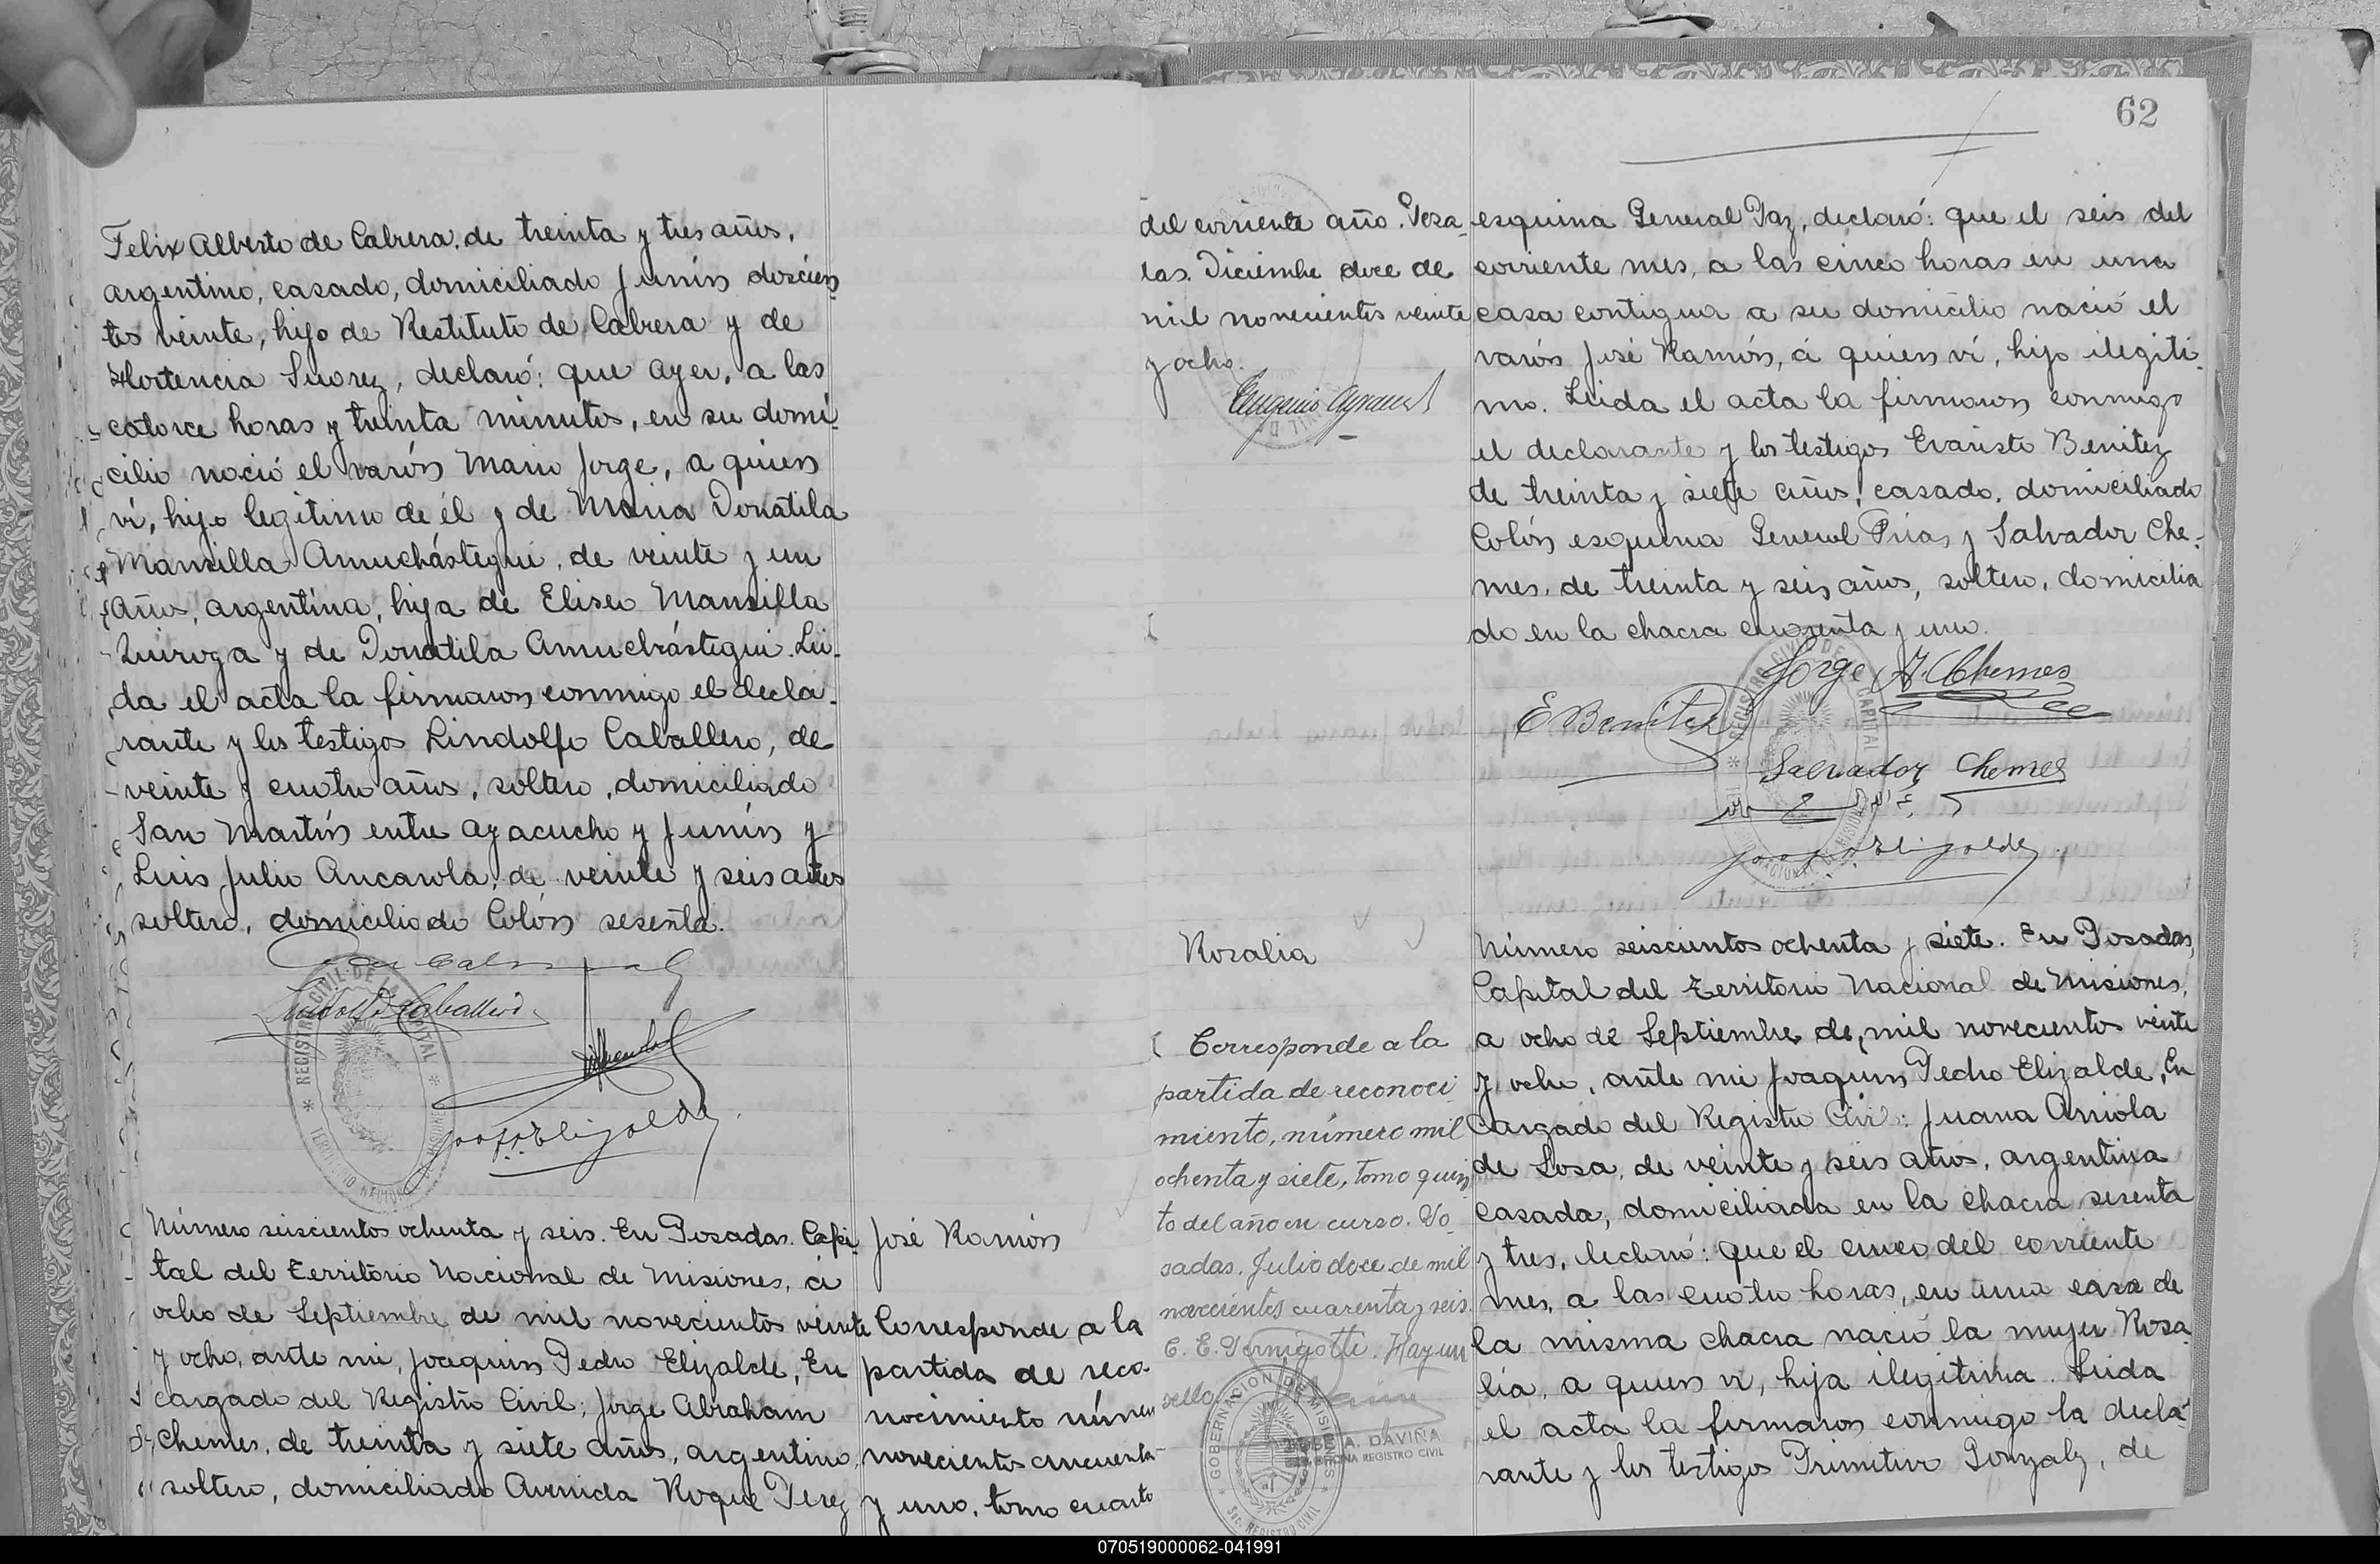 Felix Alberto de Cabrera, de treinta y tres años,
argentino, casado, domiciliado Junín doscien
tos veinte, hijo de Restituto de Cabrera y de
Hortencia Suarez, declaró: que ayer, a las
catorce horas y treinta minutos, en su domi
cilio nació el varón Mario Jorge, a quien
ví, hijo legítimo de él y de Maria Donatila
Mansilla Amuchástegui, de veinte y un
años, argentina, hija de Eliseo Mansilla
Quiroga y de Donatila Amuchástegui. Lei-
da el acta la firmaron conmigo el decla-
rante y los testigos Lindolfo Caballero, de
veinte y cuatro años, soltero, domiciliado
San Martín entre Ayacucho y Junín y
Luis Julio Ancarola, de veinte y seis años
soltero, domiciliado Colón sesenta.
Lindolfo Caballero
REGISTRO CIVIL DE LA CAPITAL
TERRITORIO NACIONAL DE MISIONES
Número seiscientos ochenta y seis. En Posadas. Capi
tal del Territorio Nacional de Misiones, a
ocho de Septiembre de mil novecientos veinte
y ocho, ante mi, Joaquin Pedro Elizalde, En
cargado del Registro Civil; Jorge Abraham
Chemes, de treinta y siete años, argentino,
soltero, domiciliado Avenida Roque Perez
José Ramón
Corresponde a la
partida de reco-
nocimiento número
novecientos cincuenta
y uno, tomo cuarto
del corriente año. Posa-
das. Diciembre doce de
mil novecientos veinte
y ocho.
62
esquina General Paz, declaró: que el seis del
corriente mes, a las cinco horas en una
casa contigua a su domicilio nació el
varón José Ramón, a quien ví, hijo ilegíti-
mo. Leida el acta la firmaron conmigo
el declarante y los testigos Evaristo Benitez
de treinta y siete años, casado, domiciliado
Colón esquina General Paz y Salvador Che-
mes, de treinta y seis años, soltero, domicilia
do en la chacra cuarenta y uno.
Jorge A. Chemes
E Benitez
Salvador Chemes
REGISTRO CIVIL DE LA CAPITAL
Rosalia
Corresponde a la
partida de reconoci
miento, número mil
ochenta y siete, tomo quin
to del año en curso. Po
sadas. Julio doce de mil
novecientos cuarenta y seis.
C. E. Pernigotti. Hay un
sello.
GOBERNACION DE MISIONES
JOSE A. DAVIÑA
OFICINA REGISTRO CIVIL
Sec. REGISTRO CIVIL
Número seiscientos ochenta y siete. En Posadas,
Capital del Territorio Nacional de Misiones,
a ocho de Septiembre de mil novecientos veinte
y ocho, ante mi Joaquin Pedro Elizalde, En
cargado del Registro Civil: Juana Arriola
de Sosa, de veinte y seis años, argentina
casada, domiciliada en la chacra sesenta
y tres, declaró: que el cinco del corriente
mes, a las cuatro horas, en una casa de
la misma chacra nació la mujer Rosa
lia, a quien ví, hija ilegítima. Leida
el acta la firmaron conmigo la decla-
rante y los testigos Primitivo Gonzalez, de
070519000062-041991